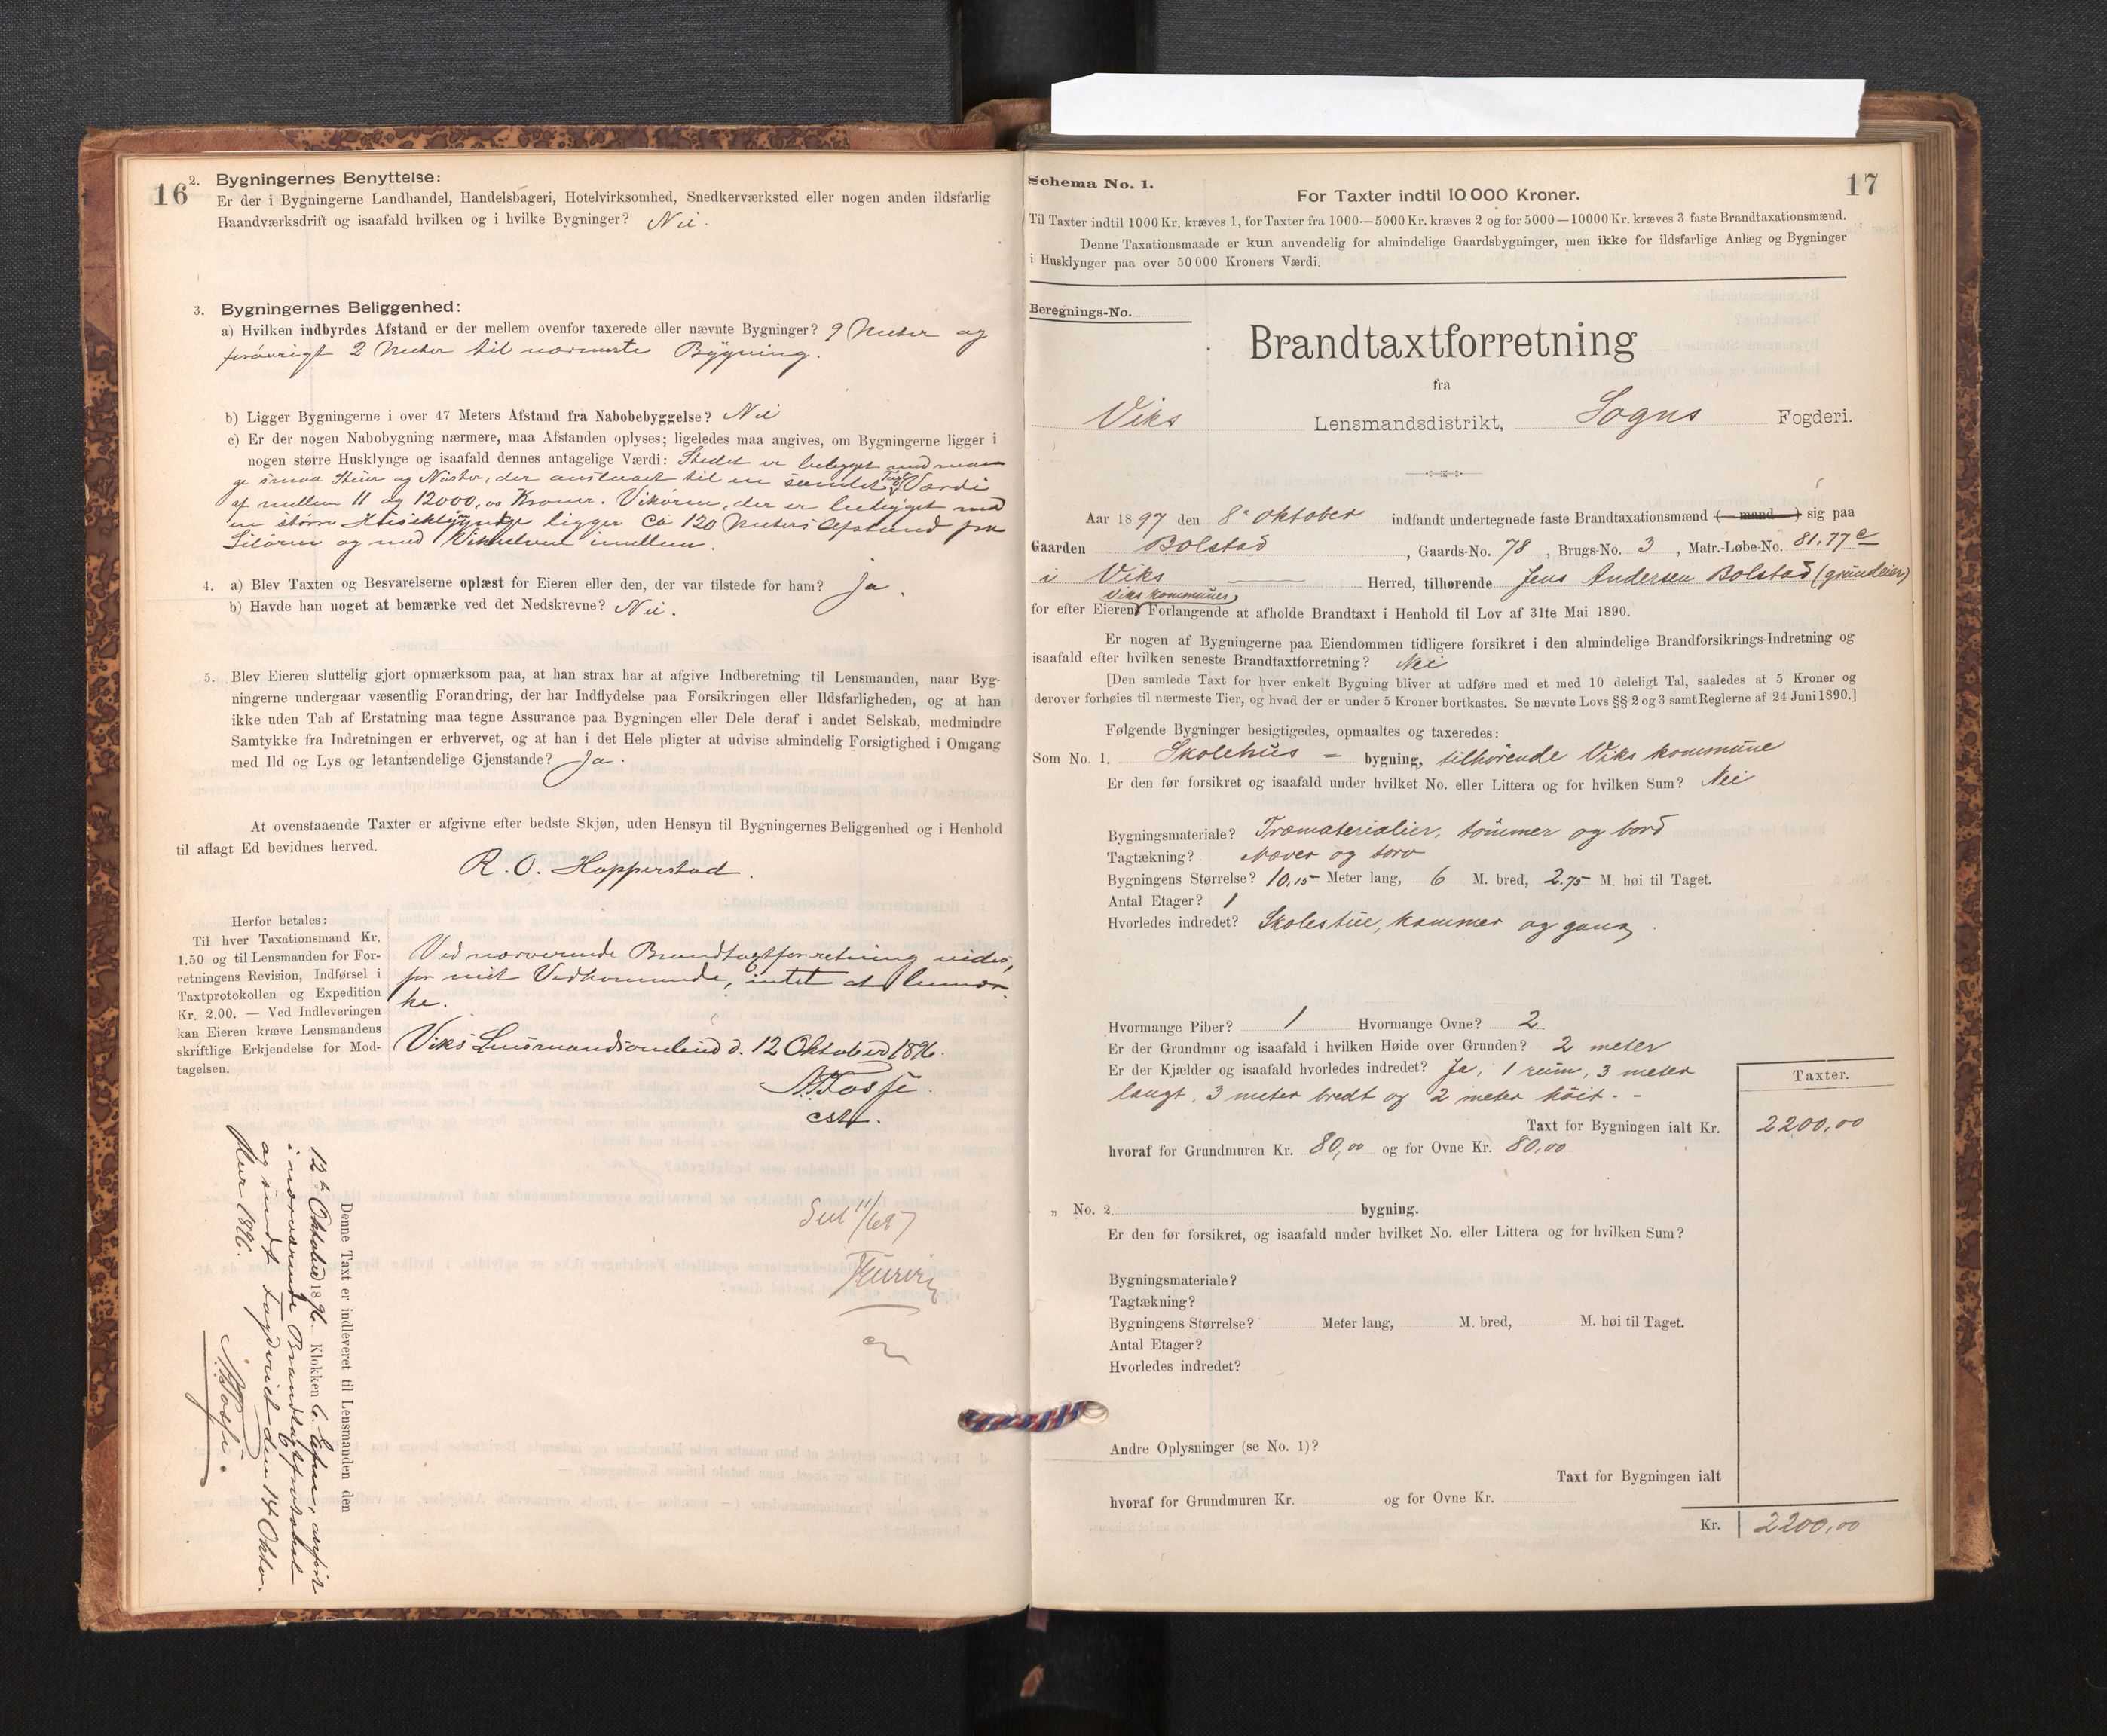 16
2. Bygningernes Benyttelse:
Er der i Bygningerne Landhandel, Handelsbageri, Hotelvirksomhed, Snedkerværksted eller nogen anden ildsfarlig
Haandværksdrift og isaafald hvilken og i hvilke Bygninger? Nei.
3. Bygningernes Beliggenhed:
a) Hvilken indbyrdes Afstand er der mellem ovenfor taxerede eller nævnte Bygninger? 9 Meter og
forøvrigt 2 Meter til nærmeste Bygning.
b) Ligger Bygningerne i over 47 Meters Afstand fra Nabobebyggelse? Nei
c) Er der nogen Nabobygning nærmere, maa Afstanden oplyses; ligeledes maa angives, om Bygningerne ligger i
nogen større Husklynge og isaafald dennes antagelige Værdi: Stedet er bebygget med man-
ge smaa Huse og Nøster, der ansluaes til en samlet Taxt Værdi
af mellem 11 og 12000,00 Kroner. Vikøren, der er bebygget med
en større Husklynge ligger ca 120 Meters Afstand fra
og med imellem.
4. a) Blev Taxten og Besvarelserne oplæst for Eieren eller den, der var tilstede for ham? Ja.
b) Havde han noget at bemærke ved det Nedskrevne? Nei.
5. Blev Eieren sluttelig gjort opmærksom paa, at han strax har at afgive Indberetning til Lensmanden, naar Byg-
ningerne undergaar væsentlig Forandring, der har Indflydelse paa Forsikringen eller Ildsfarligheden, og at han
ikke uden Tab af Erstatning maa tegne Assurance paa Bygningen eller Dele deraf i andet Selskab, medmindre
Samtykke fra Indretningen er erhvervet, og at han i det Hele pligter at udvise almindelig Forsigtighed i Omgang
med Ild og Lys og letantændelige Gjenstande? Ja.
At ovenstaaende Taxter er afgivne efter bedste Skjøn, uden Hensyn til Bygningernes Beliggenhed og i Henhold
til aflagt Ed bevidnes herved.
R. O. Hopperstad.
Herfor betales:
Til hver Taxationsmand Kr.
1.50 og til Lensmanden for For-
retningens Revision, Indførsel i
Taxtprotokollen og Expedition
Kr. 2.00. — Ved Indleveringen
kan Eieren kræve Lensmandens
skriftlige Erkjendelse for Mod-
tagelsen.
Ved nærværende Brandtaxtforretning vides,
for mit Vedkommende, intet at bemær-
ke.
Viks Lensmandsombud d. 12 Oktober 1896.
A. Fosse.
cst.
Denne Taxt er indleveret til Lensmanden den
12te Oktober 1896. Klokken 6 Efterm., anført
i nærværende Brandtaxtprotokol
og sendt Fogderiet den 14 Okto-
ber 1896.
A. Fosse.
17
Schema No. 1.
For Taxter indtil 10 000 Kroner.
Til Taxter indtil 1000 Kr. kræves 1, for Taxter fra 1000—5000 Kr. kræves 2 og for 5000—10000 Kr. kræves 3 faste Brandtaxationsmænd.
Denne Taxationsmaade er kun anvendelig for almindelige Gaardsbygninger, men ikke for ildsfarlige Anlæg og Bygninger
i Husklynger paa over 50 000 Kroners Værdi.
Beregnings-No.
Brandtaxtforretning
fra
Viks Lensmandsdistrikt, Sogns Fogderi.
Aar 1897 den 8de Oktober indfandt undertegnede faste Brandtaxationsmænd (— mand —) sig paa
Gaarden Bolstad, Gaards-No. 78, Brugs-No. 3, Matr.-Løbe-No. 81.77c
i Viks Herred, tilhørende Jens Andersen Bolstad (grundeier)
Viks kommunes
for efter Eieren Forlangende at afholde Brandtaxt i Henhold til Lov af 31te Mai 1890.
Er nogen af Bygningerne paa Eiendommen tidligere forsikret i den almindelige Brandforsikrings-Indretning og
isaafald efter hvilken seneste Brandtaxtforretning? Nei
[Den samlede Taxt for hver enkelt Bygning bliver at udføre med et med 10 deleligt Tal, saaledes at 5 Kroner og
derover forhøies til nærmeste Tier, og hvad der er under 5 Kroner bortkastes. Se nævnte Lovs §§ 2 og 3 samt Reglerne af 24 Juni 1890.]
Følgende Bygninger besigtigedes, opmaaltes og taxeredes:
Som No. 1. Skolehus - bygning, tilhørende Viks kommune
Er den før forsikret og isaafald under hvilket No. eller Littera og for hvilken Sum? Nei
Bygningsmateriale? Træmaterialier, tømmer og bord
Tagtækning? Næver og torv
Bygningens Størrelse? 10,15 Meter lang, 6 M. bred, 2.75 M. høi til Taget.
Antal Etager? 1
Hvorledes indredet? Skolestue, kammer og gang.
Hvormange Piber? 1 Hvormange Ovne? 2
Er der Grundmur og isaafald i hvilken Høide over Grunden? 2 meter
Er der Kjælder og isaafald hvorledes indredet? Ja, 1 rum, 3 meter
langt, 3 meter bredt og 2 meter höit. -
Taxter.
Taxt for Bygningen ialt Kr. 2200,00
hvoraf for Grundmuren Kr. 80,00 og for Ovne Kr. 80,00
„ No. 2 bygning.
Er den før forsikret, og isaafald under hvilket No. eller Littera og for hvilken Sum?
Bygningsmateriale?
Tagtækning?
Bygningens Størrelse? Meter lang, M. bred, M. høi til Taget.
Antal Etager?
Hvorledes indredet?
Andre Oplysninger (se No. 1)?
Taxt for Bygningen ialt
hvoraf for Grundmuren Kr. og for Ovne Kr.
Kr. 2200,00